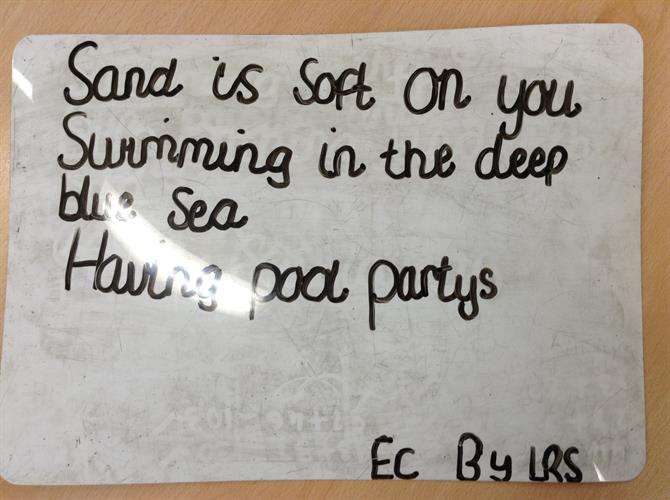 Sand is soft on you
Swimming in the deep
blue sea
Having pool partys
EC By LRS